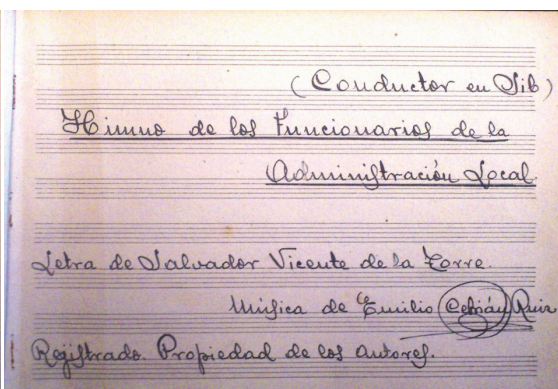 (Conductor en Sib)
Himno de los Funcionarios de la
Administración Local.
Letra de Salvador Vicente de la Torre.
Música de Emilio Cebrián Ruiz
Registrado. Propiedad de los autores.